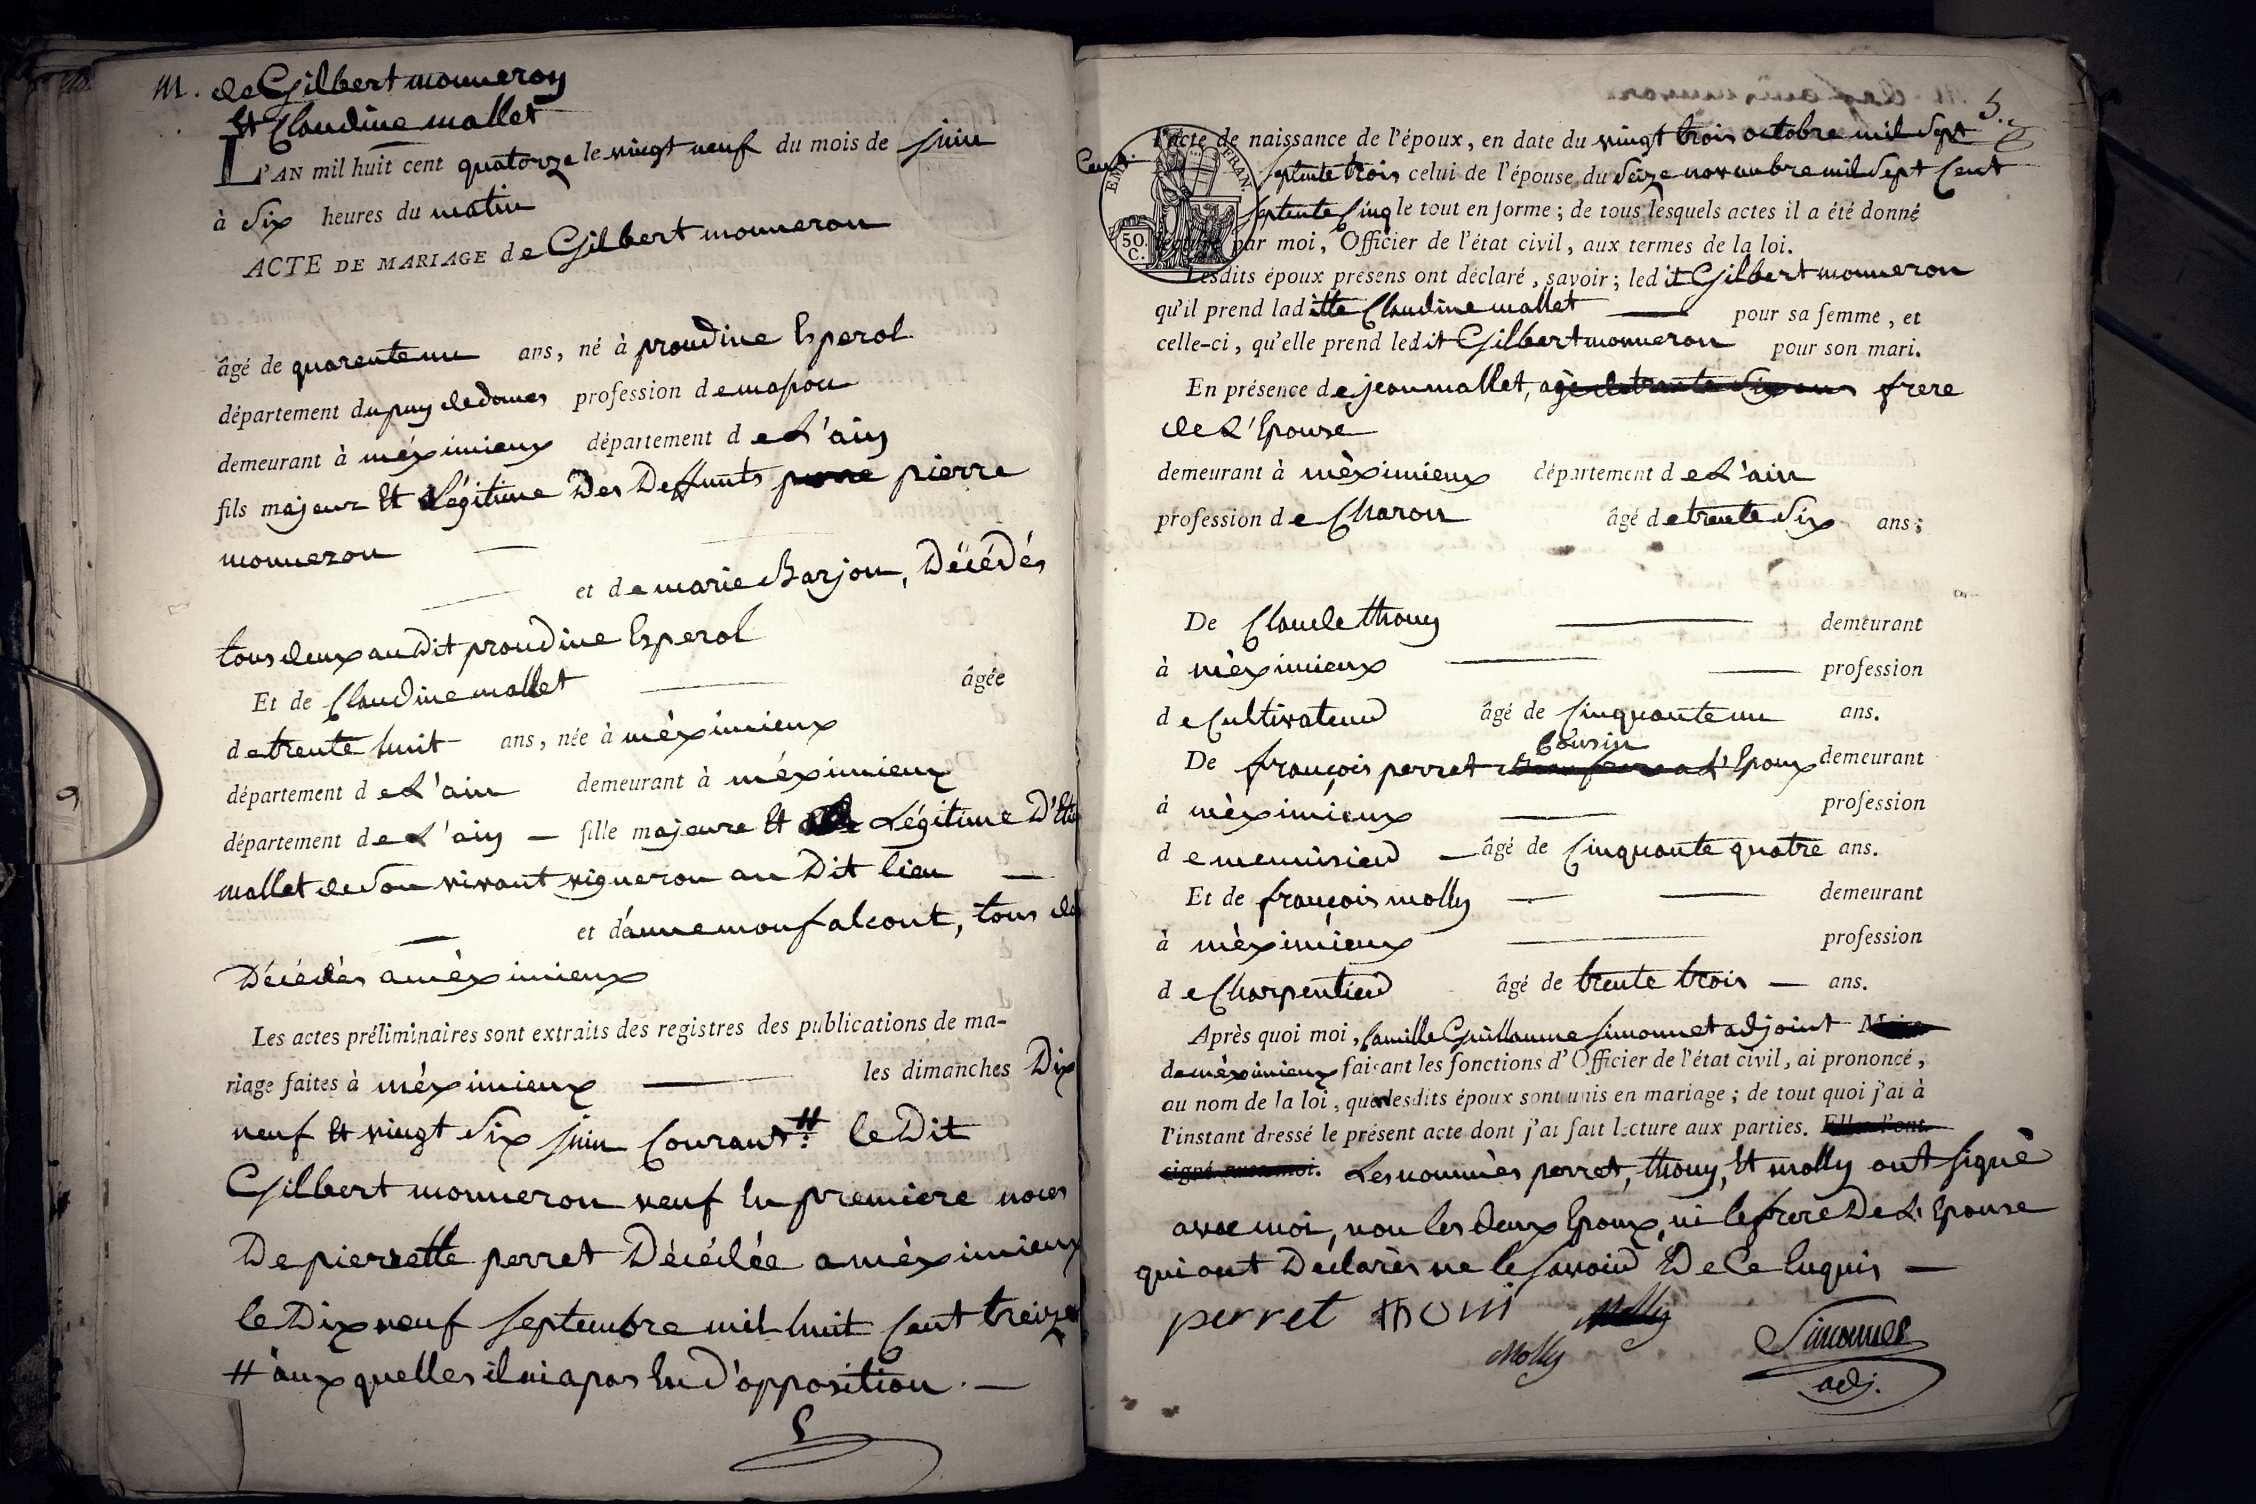 M. de Gilbert monneron
Et Claudine mallet
L'AN mil huit cent quatorze le vingt neuf du mois de juin
à Six heures du matin
ACTE DE MARIAGE de Gilbert monneron
âgé de quarente un ans, né à proudine Esperol
département du puy de domes profession de maçon
demeurant à méximieux département de L'ain
fils majeur Et Légitime Des Deffunts pierre
monneron
et de marie Barjon, Décédés
tous deux au Dit proudine Esperol
Et de Claudine mallet âgée
de trente huit ans, née à mèximieux
département de L'ain demeurant à méximieux
département de L'ain — fille majeure Et Légitime
mallet de Son vivant vigneron au Dit lieu —
et d'anne monfalcont, tous
Décédés a mèximieux
Les actes préliminaires sont extraits des registres des publications de ma-
riage faites à méximieux les dimanches Dix
neuf Et vingt Six juin Courant # le Dit
Gilbert monneron veuf En premiere noces
De pierrette perret Décédée a mèximieux
le Dix neuf Septembre mil huit Cent treize
# aux quelles il ni a pas Eu D'opposition. —
5.
l'acte de naissance de l'époux, en date du vingt trois octobre mil Sept
Cent
EMP. FRAN.
Septente trois celui de l'épouse du Seize novembre mil Sept Cent
Septente Cinq le tout en forme ; de tous lesquels actes il a été donné
50. C.
lecture par moi, Officier de l'état civil, aux termes de la loi.
Lesdits époux présens ont déclaré, savoir ; ledit Gilbert monneron
qu'il prend laditte Claudine mallet — pour sa femme, et
celle-ci, qu'elle prend ledit Gilbert monneron pour son mari.
En présence de jean mallet, age de trente Six ans frere
de L'Epouse
demeurant à mèximieux département de L'ain
profession de Charon âgé de trente Six ans ;
De Claude thouy demeurant
à mèximieux profession
de Cultivateur âgé de Cinquante un ans.
Cousin
De françois perret a L'Epoux demeurant
à mèximieux profession
de menuisier — âgé de Cinquante quatre ans.
Et de françois molly demeurant
à mèximieux profession
de Charpentier âgé de trente trois — ans.
Après quoi moi, Camille Guillaume Simonnet adjoint Maire
de mèximieux faisant les fonctions d'Officier de l'état civil, ai prononcé,
au nom de la loi, que lesdits époux sont unis en mariage ; de tout quoi j'ai à
l'instant dressé le présent acte dont j'ai fait lecture aux parties. Elles l'ont
signé avec moi. Les nommès perret, thouy, Et molly ont Signè
avec moi, non les deux Epoux, ni le frere De L'Epouse
qui ont Déclarès ne le Savoir De Ce Enquis —
perret thoui Molly
Molly
Simonnet
adj.